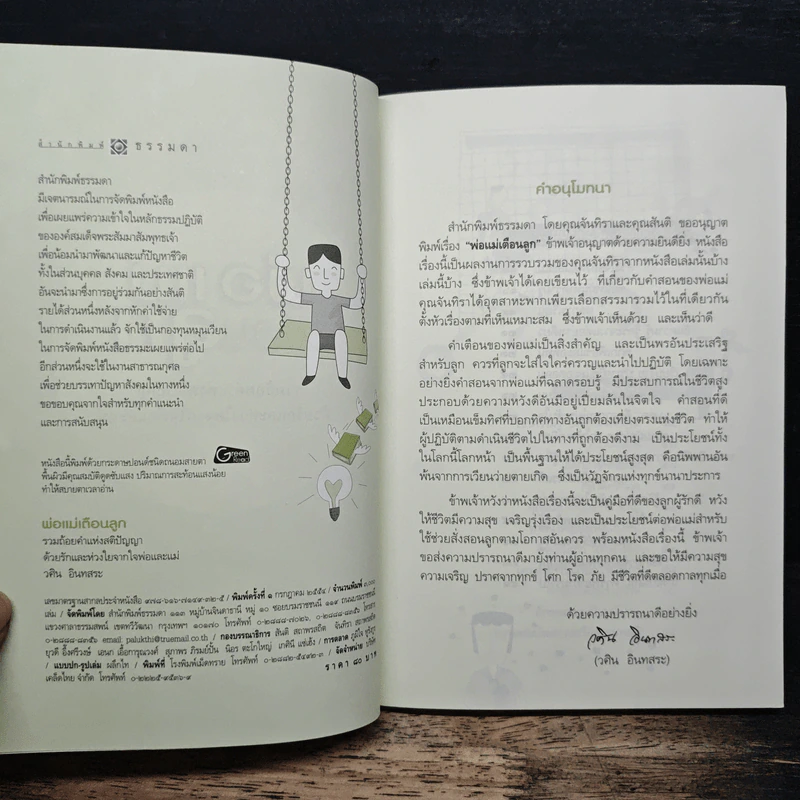 สำนักพิมพ์ ธรรมดา
สำนักพิมพ์ธรรมดา
มีเจตนารมณ์ในการจัดพิมพ์หนังสือ
เพื่อเผยแพร่ความเข้าใจในหลักธรรมปฏิบัติ
ขององค์สมเด็จพระสัมมาสัมพุทธเจ้า
เพื่อน้อมนำมาพัฒนาและแก้ปัญหาชีวิต
ทั้งในส่วนบุคคล สังคม และประเทศชาติ
อันจะนำมาซึ่งการอยู่ร่วมกันอย่างสันติ
รายได้ส่วนหนึ่งหลังจากหักค่าใช้จ่าย
ในการดำเนินงานแล้ว จักใช้เป็นกองทุนหมุนเวียน
ในการจัดพิมพ์หนังสือธรรมะเผยแพร่ต่อไป
อีกส่วนหนึ่งจะใช้ในงานสาธารณกุศล
เพื่อช่วยบรรเทาปัญหาสังคมในทางหนึ่ง
ขอขอบคุณจากใจสำหรับทุกคำแนะนำ
และการสนับสนุน
หนังสือนี้พิมพ์ด้วยกระดาษปอนด์ชนิดถนอมสายตา
พื้นผิวมีคุณสมบัติดูดซับแสง ปริมาณการสะท้อนแสงน้อย
ทำให้สบายตาเวลาอ่าน
Green Read
พ่อแม่เตือนลูก
รวมถ้อยคำแห่งสติปัญญา
ด้วยรักและห่วงใยจากพ่อและแม่
วศิน อินทสระ
เลขมาตรฐานสากลประจำหนังสือ ๙๗๘-๖๑๖-๗๑๔๙-๓๒-๕ / พิมพ์ครั้งที่ ๑ กรกฎาคม ๒๕๕๔ / จำนวนพิมพ์ ๓,๐๐๐
เล่ม / จัดพิมพ์โดย สำนักพิมพ์ธรรมดา ๑๑๓ หมู่บ้านจินดาธานี หมู่ ๑๐ ซอยบรมราชชนนี ๑๑๙ ถนนบรมราชชนนี
แขวงศาลาธรรมสพน์ เขตทวีวัฒนา กรุงเทพฯ ๑๐๑๗๐ โทรศัพท์ ๐-๒๘๘๘-๗๐๒๖, ๐-๒๘๘๘-๘๓๕๖ โทรสาร
๐-๒๘๘๘-๘๓๕๖ email: palukthi@truemail.co.th / กองบรรณาธิการ สันติ สถาพรสถิต จันทิรา สถาพรสถิต
/ แบบปก-รูปเล่ม ผลึกไท / พิมพ์ที่ โรงพิมพ์เม็ดทราย โทรศัพท์ ๐-๒๘๘๒-๕๔๙๒-๓ / จัดจำหน่าย บริษัท
เคล็ดไทย จำกัด โทรศัพท์ ๐-๒๒๒๕-๙๕๓๖-๙
ราคา ๘๐ บาท
คำอนุโมทนา
สำนักพิมพ์ธรรมดา โดยคุณจันทิราและคุณสันติ ขออนุญาต
พิมพ์เรื่อง "พ่อแม่เตือนลูก" ข้าพเจ้าอนุญาตด้วยความยินดียิ่ง หนังสือ
เรื่องนี้เป็นผลงานการรวบรวมของคุณจันทิราจากหนังสือเล่มนั้นบ้าง
เล่มนี้บ้าง ซึ่งข้าพเจ้าได้เคยเขียนไว้ ที่เกี่ยวกับคำสอนของพ่อแม่
คุณจันทิราได้อุตสาหะพากเพียรเลือกสรรมารวมไว้ในที่เดียวกัน
ตั้งหัวเรื่องตามที่เห็นเหมาะสม ซึ่งข้าพเจ้าเห็นด้วย และเห็นว่าดี
คำเตือนของพ่อแม่เป็นสิ่งสำคัญ และเป็นพรอันประเสริฐ
สำหรับลูก ควรที่ลูกจะใส่ใจใคร่ครวญและนำไปปฏิบัติ โดยเฉพาะ
อย่างยิ่งคำสอนจากพ่อแม่ที่ฉลาดรอบรู้ มีประสบการณ์ในชีวิตสูง
ประกอบด้วยความหวังดีอันมีอยู่เปี่ยมล้นในจิตใจ คำสอนที่ดี
เป็นเหมือนเข็มทิศที่บอกทิศทางอันถูกต้องเที่ยงตรงแห่งชีวิต ทำให้
ผู้ปฏิบัติตามดำเนินชีวิตไปในทางที่ถูกต้องดีงาม เป็นประโยชน์ทั้ง
ในโลกนี้โลกหน้า เป็นพื้นฐานให้ได้ประโยชน์สูงสุด คือนิพพานอัน
พ้นจากการเวียนว่ายตายเกิด ซึ่งเป็นวัฏจักรแห่งทุกข์นานาประการ
ข้าพเจ้าหวังว่าหนังสือเรื่องนี้จะเป็นคู่มือที่ดีของลูกผู้รักดี หวัง
ให้ชีวิตมีความสุข เจริญรุ่งเรือง และเป็นประโยชน์ต่อพ่อแม่สำหรับ
ใช้ช่วยสั่งสอนลูกตามโอกาสอันควร พร้อมหนังสือเรื่องนี้ ข้าพเจ้า
ขอส่งความปรารถนาดีมายังท่านผู้อ่านทุกคน และขอให้มีความสุข
ความเจริญ ปราศจากทุกข์ โศก โรค ภัย มีชีวิตที่ดีตลอดกาลทุกเมื่อ
ด้วยความปรารถนาดีอย่างยิ่ง
วศิน อินทสระ
(วศิน อินทสระ)